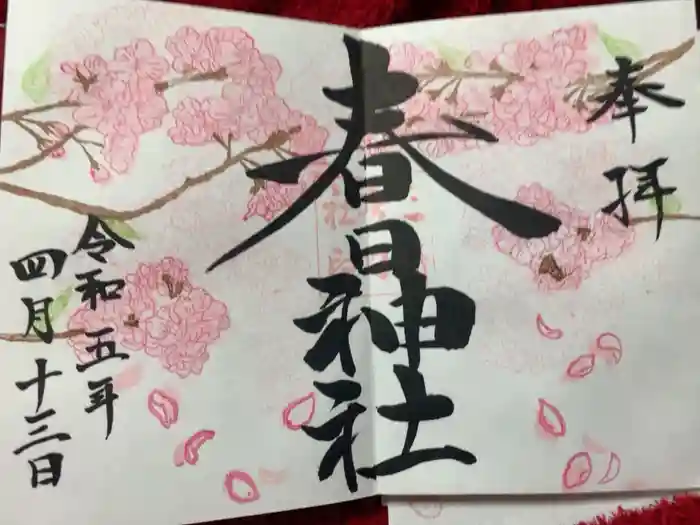 奉拝
春日神社
令和五年
四月十三日